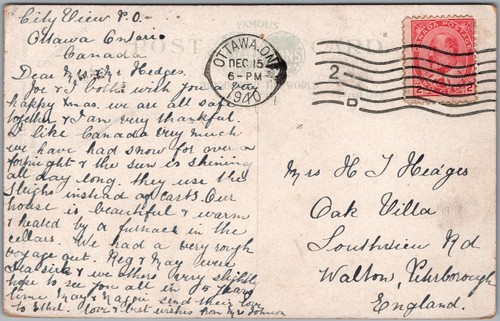 City View P.O.
Ottawa Ontario
Canada
Dear Mr & Mrs Hedges.
Joe & I both wish you a very
happy Xmas. we are all safe
together & I am very thankful.
I like Canada very much
we have had snow for over a
fortnight & the sun is shining
all day long. they use the
sleighs instead of carts. Our
house is beautiful & warm
& heated by a furnace in the
cellars. We had a very rough
voyage out. Meg & May were
sea sick & we others very slightly
hope to see you all in 5 years
time May & Maggie send their love
to Ethel. love & best wishes from Mrs Johnson
FAMOUS
POST CARD
OTTAWA, ONT.
DEC 15
6-PM
1910
2
D
CANADA POSTAGE
2 2
Mrs H J Hedges
Oak Villa
Southview Rd
Walton, Peterborough
England.